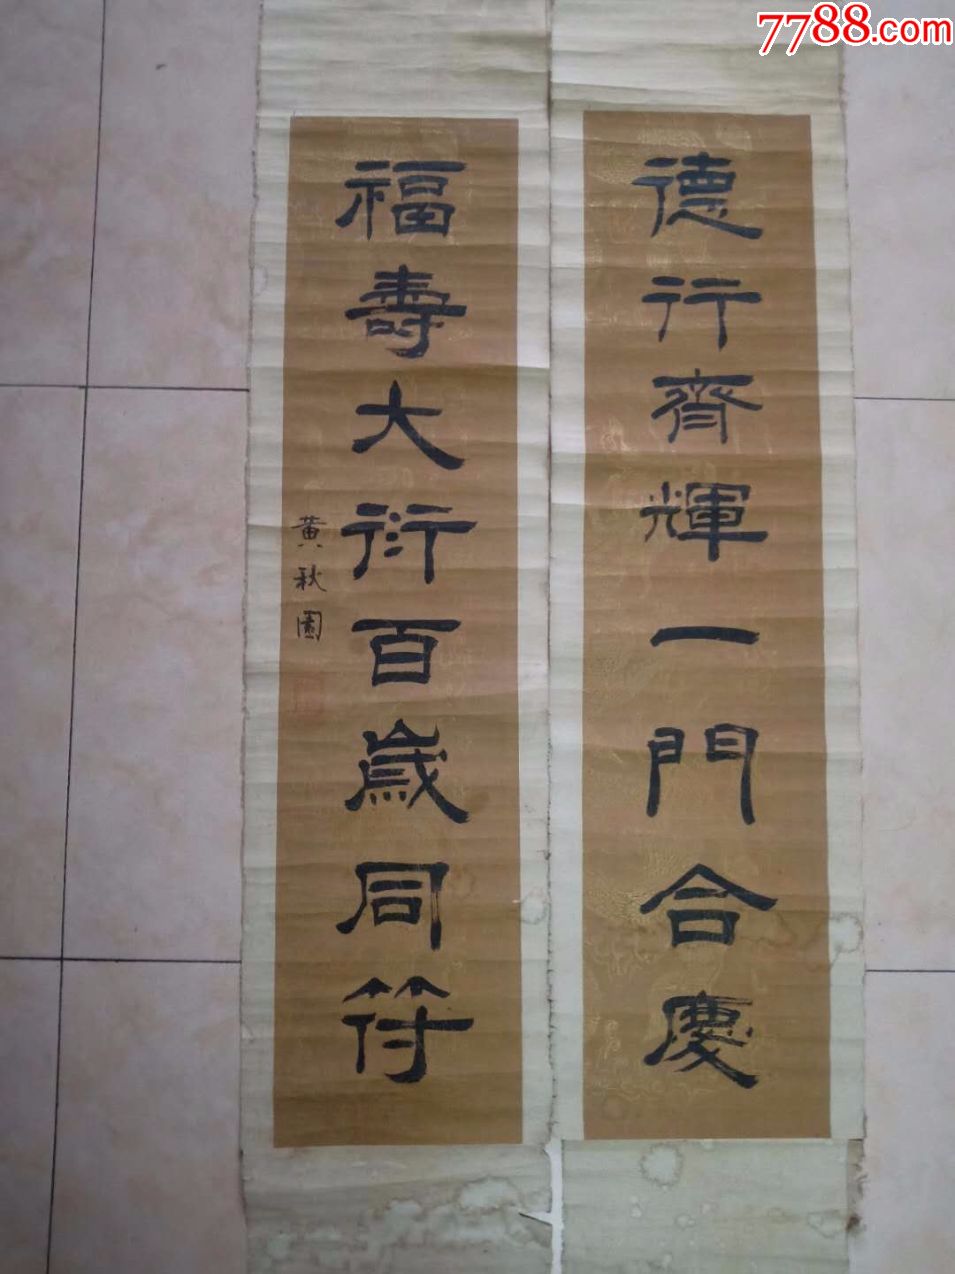 7788.com
德行齊輝一門合慶
福壽大衍百歲同符
黄秋園